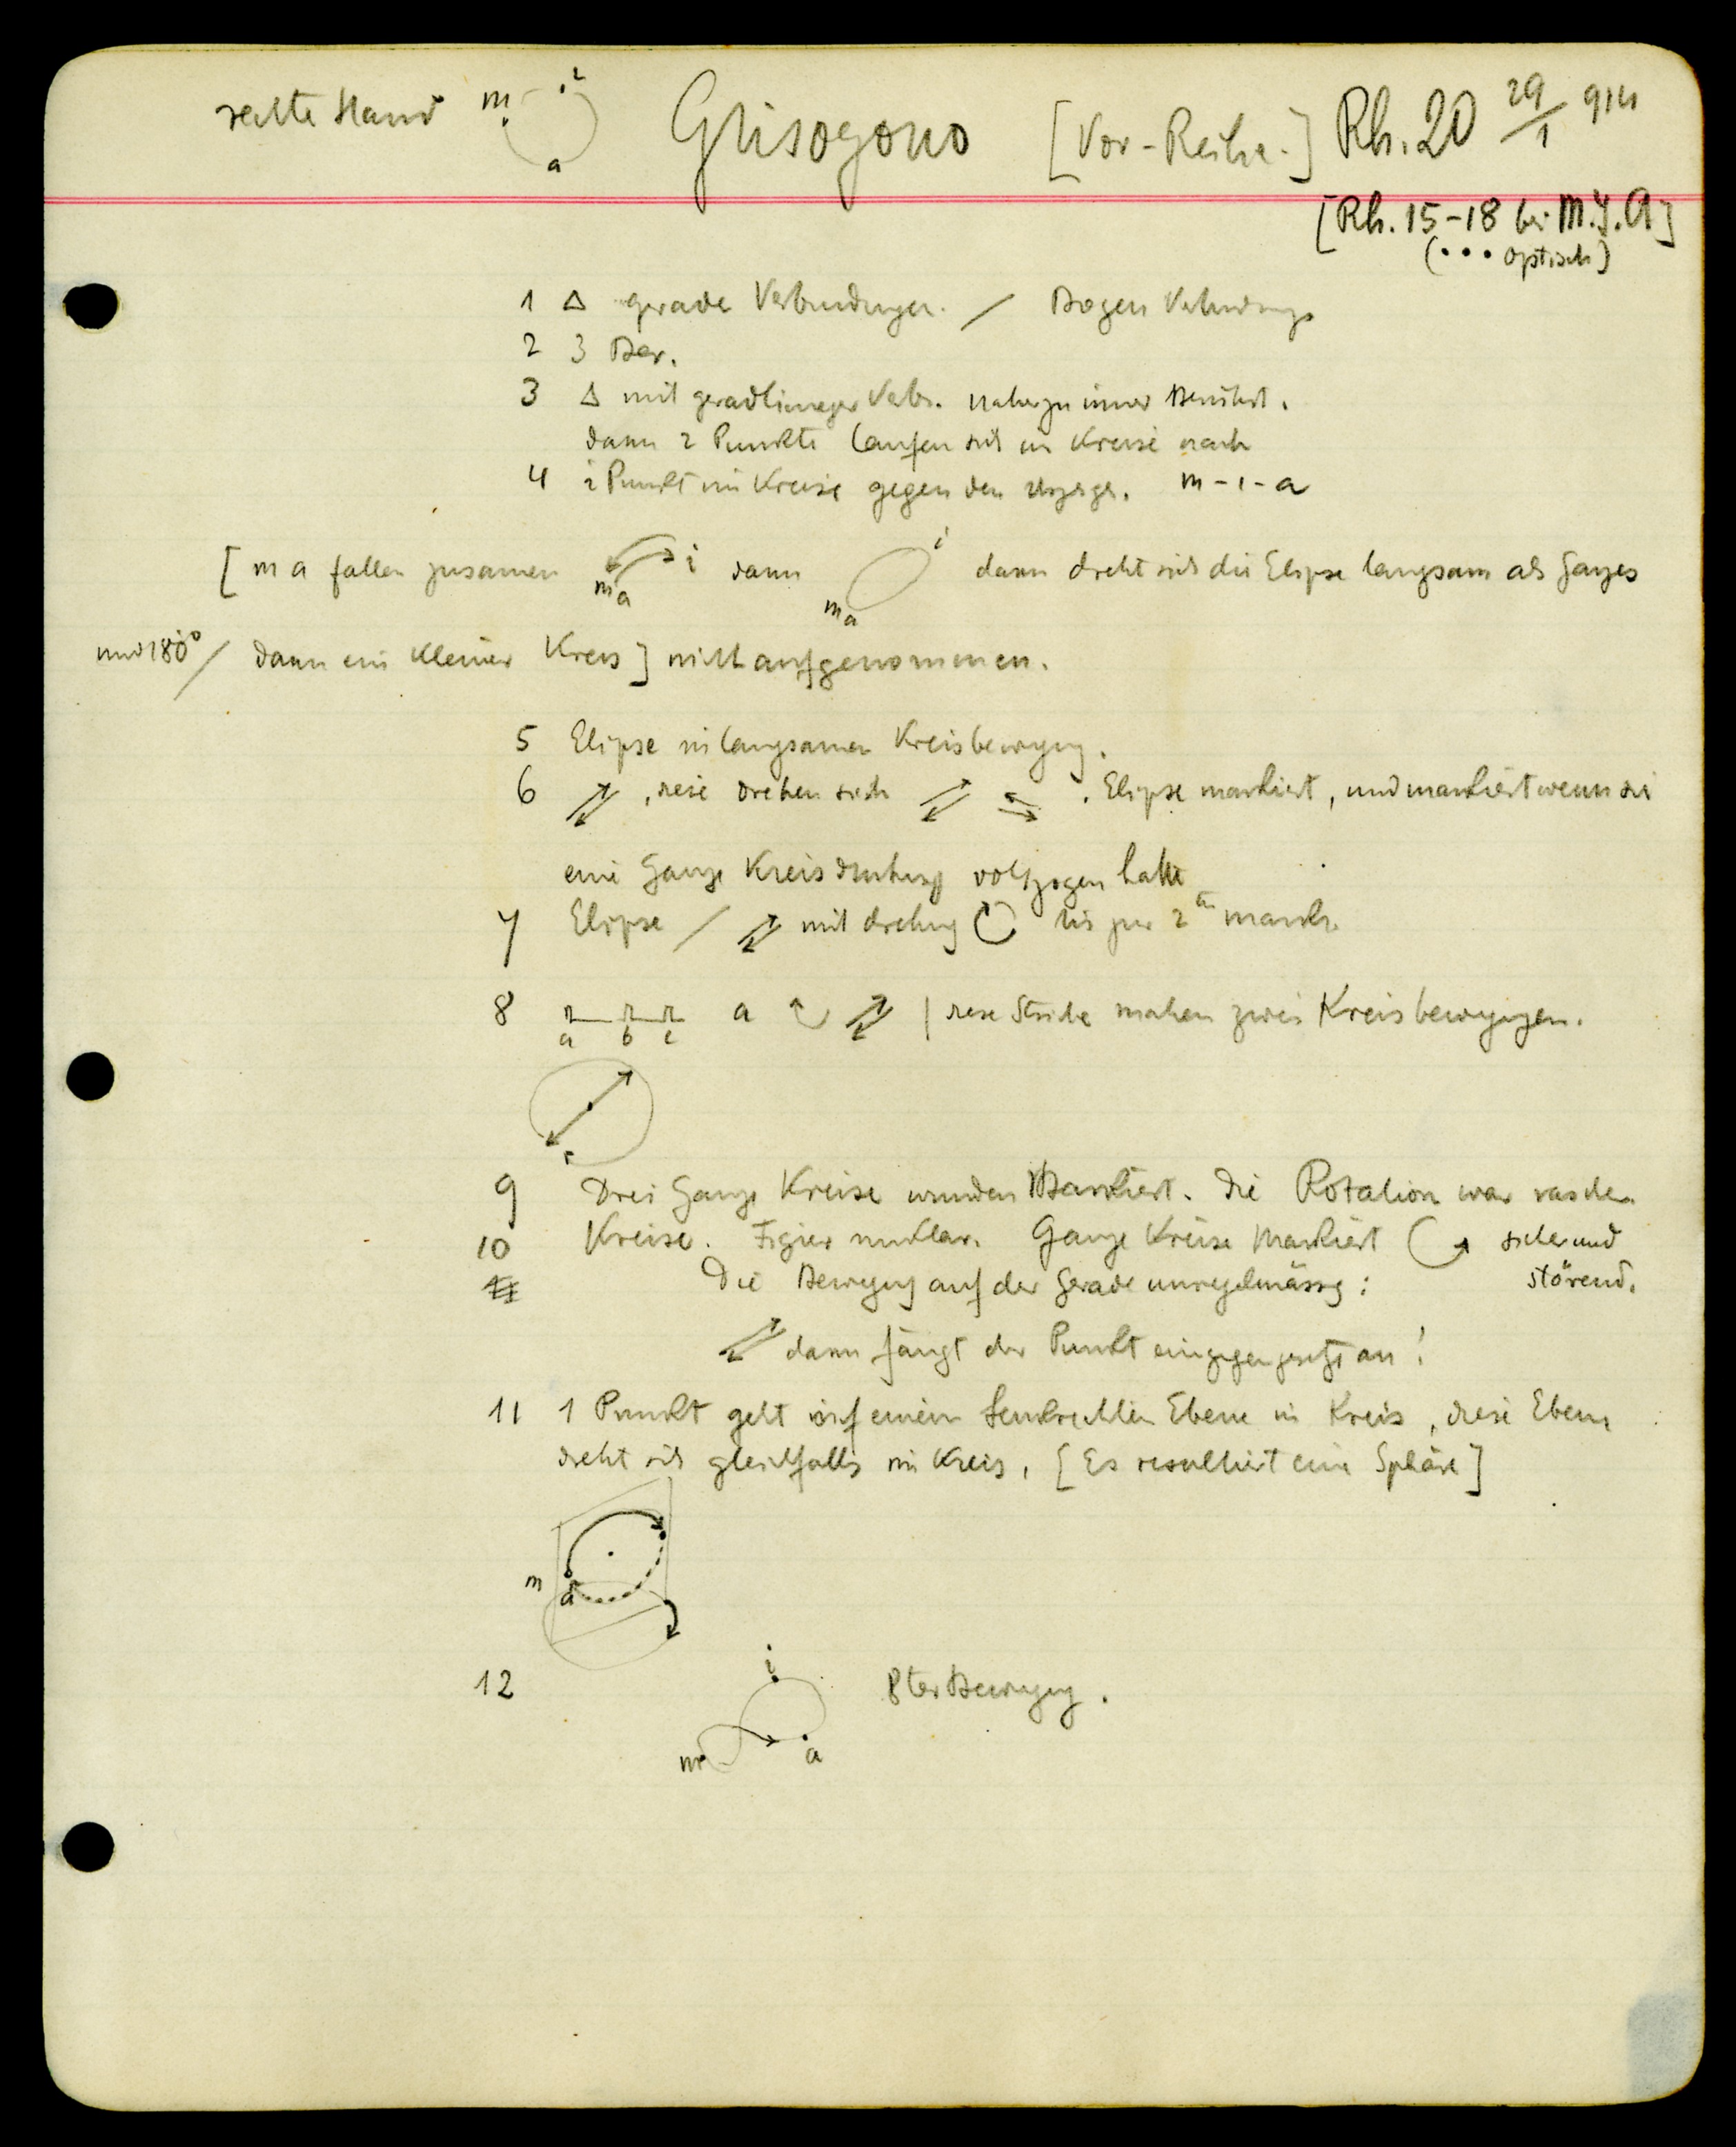 rechte Hand m i a Grisogono [Vor-Reihe.] Rh. 20 29/1 914
[Rh. 15-18 bei M.J.A]
(••• optisch)
1 Δ gerade Verbindungen. / Bogen Verbindungs
2 3 Bew.
3 Δ mit geradliniger Verb. nahezu immer Berührt.
dann 2 Punkte laufen sich im Kreise nach
4 i Punkt im Kreise gegen den Uhrzeiger. m - i - a
[ m a fallen zusamen m a i dann m a i dann dreht sich die Elipse langsam als Ganzes
und 180° / dann ein kleiner Kreis ] nicht aufgenommen.
5 Elipse in langsamer Kreisbewegung.
6 , diese drehen sich . Elipse markiert, und markiert wenn sie
eine Ganze Kreisdrehung vollzogen hatte
7 Elipse / mit drehung bis zur 2 en mark.
8 a b c a | diese Striche machen zwei Kreisbewegungen.
9 Drei Ganze Kreise wurden Markiert. Die Rotation war rascher
10 Kreise. Figur unklar. Ganze Kreise Markiert sicher und
Die Bewegung auf der Gerade unregelmässig: störend.
dann fängt der Punkt entgegengesetzt an!
11 1 Punkt geht auf einem Senkrechten Ebene im Kreis, diese Ebene
dreht sich gleichfalls im Kreis, [Es resultiert eine Sphäre]
m a
12 i m a 8ter Bewegung.